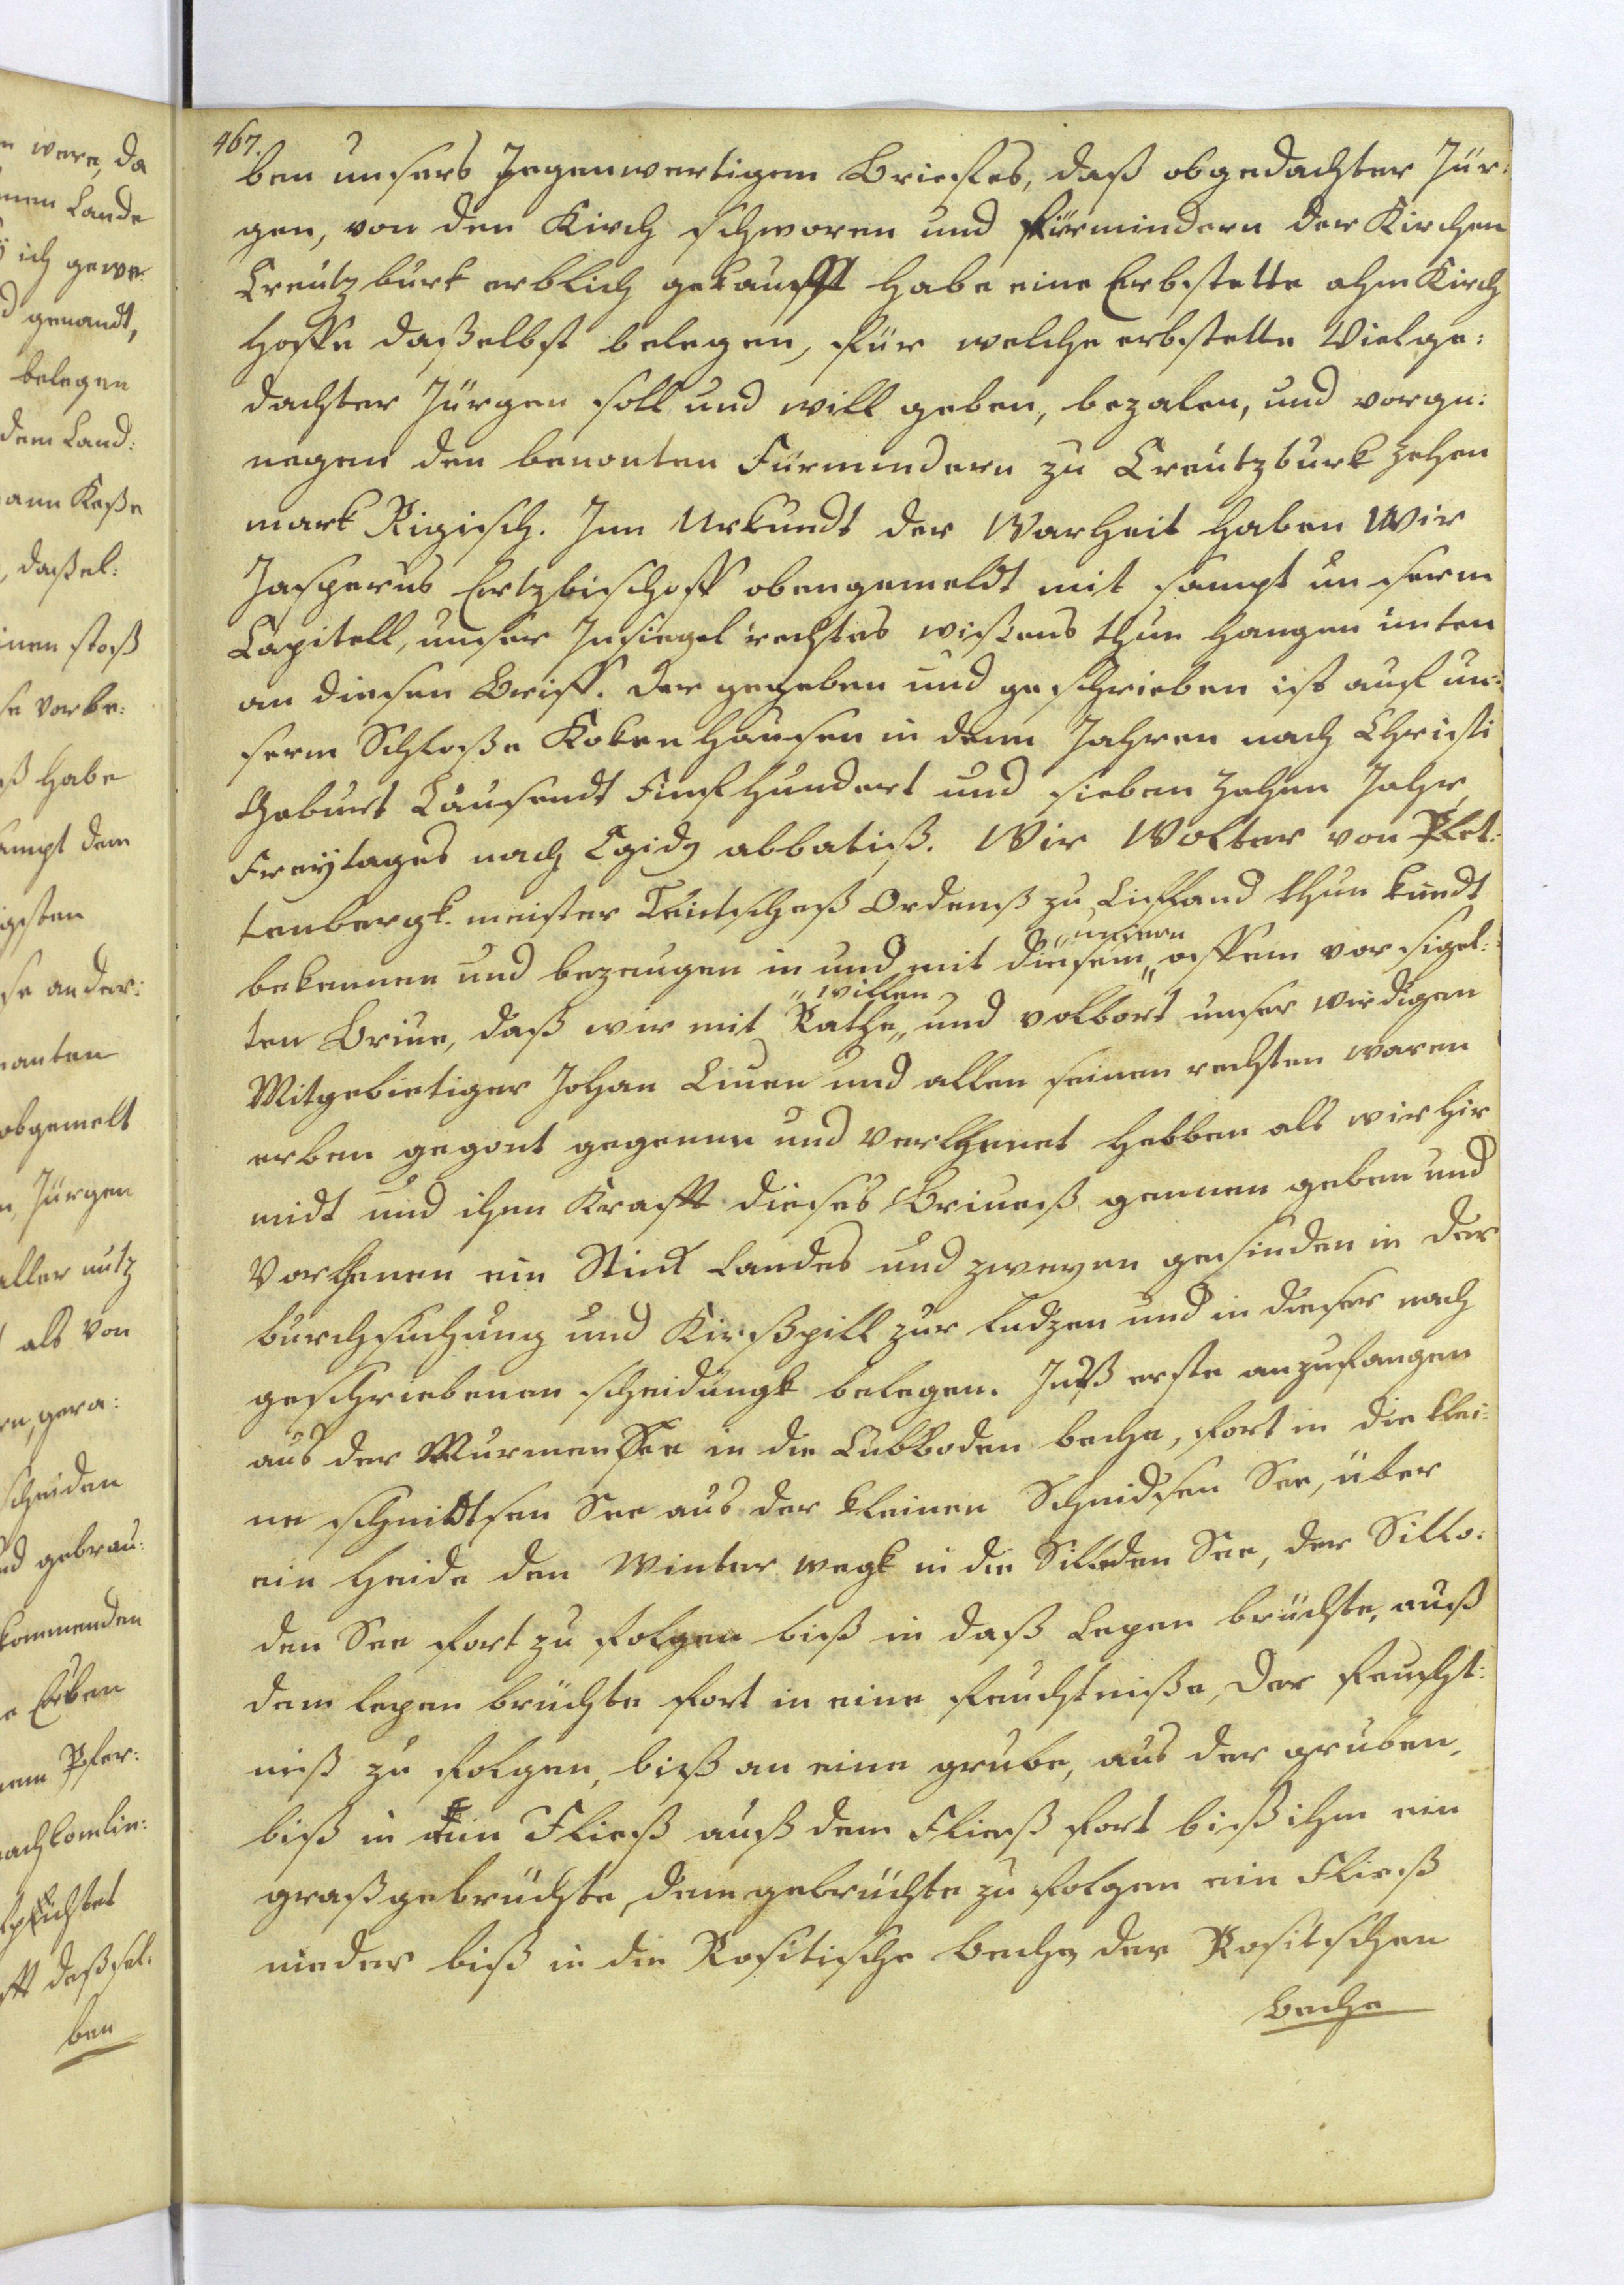 467.
ben unsers Jegenwertigem Briefes, daß obgedachter Jür:
gen, von den Kirch schworen und fürmindern der Kirchen
Creutzburk erblich gekaufft habe eine Erbstette ahm Kirch
hoffe daßelbst belegen, für welche erbstette Vielge:
dachter Jürgen soll und will geben, bezalen, und vorgn:
negen den benonten Fürmundern zu Creutzburk zehen
mark Rigisch. Inn Urkundt der Warheit haben Wir
Jasperus Ertzbischoff obengemeldt mit sampt unserm
Capitell, unser Insiegel rechtes wißens thun hangen unten
an diesen Briff. der gegeben und geschrieben ist auf un:
serm Schloße Kokenhausen in denn Jahren nach Christi
Geburt Tausendt Funfhundert und sieben zehen Jahr,
Freytages nach Egidy abbatiß. Wir Wolter von Plet:
tenbergk. meister Teutscheß Ordenß zu Liffland thun kundt
bekennen und bezeugen in und mit diesem „unsern „ offem vorsigel:
ten Briue, daß wir mit Rathe „willen „ und volbort unser wirdigen
Mitgebietiger Johan Liuen und allen seinen rechten waren
erben gegont gegeuen und verlhenet hebben als wir hir
midt und ihen Krafft dieses Brieueß gennen geben und
Vorlhenen ein Stück Landes und zweyen gesinden in der
burchsuchung und Kirßpill zur Ludzen und in dieser nach
geschriebenen scheidungk belegen. Intß erste anzufangen
aus der Murmen See in die Lubboden beche, fort in die klei:
ne schnidtsen See aus der kleinen Schnidsen See, über
ein Heide den Winter wegk in die Silloden See, der Sillo:
den See fort zu folgen biß in daß Lepen brüchte, auß
dem lepen brüchte fort in eine feuchtniße, der feucht:
niß zu folgen, biß an eine grube, aus der gruben,
biß in ein Fließ auß dem Fließ fort biß ihm ein
graßgebrüchte, dem gebrüchte zu folgen ein Fließ
nieder biß in die Rositische beche, der Rositschen
beche